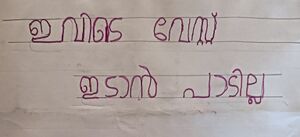 ഇവിടെ വേസ്റ്റ്
ഇടാൻ പാടില്ല